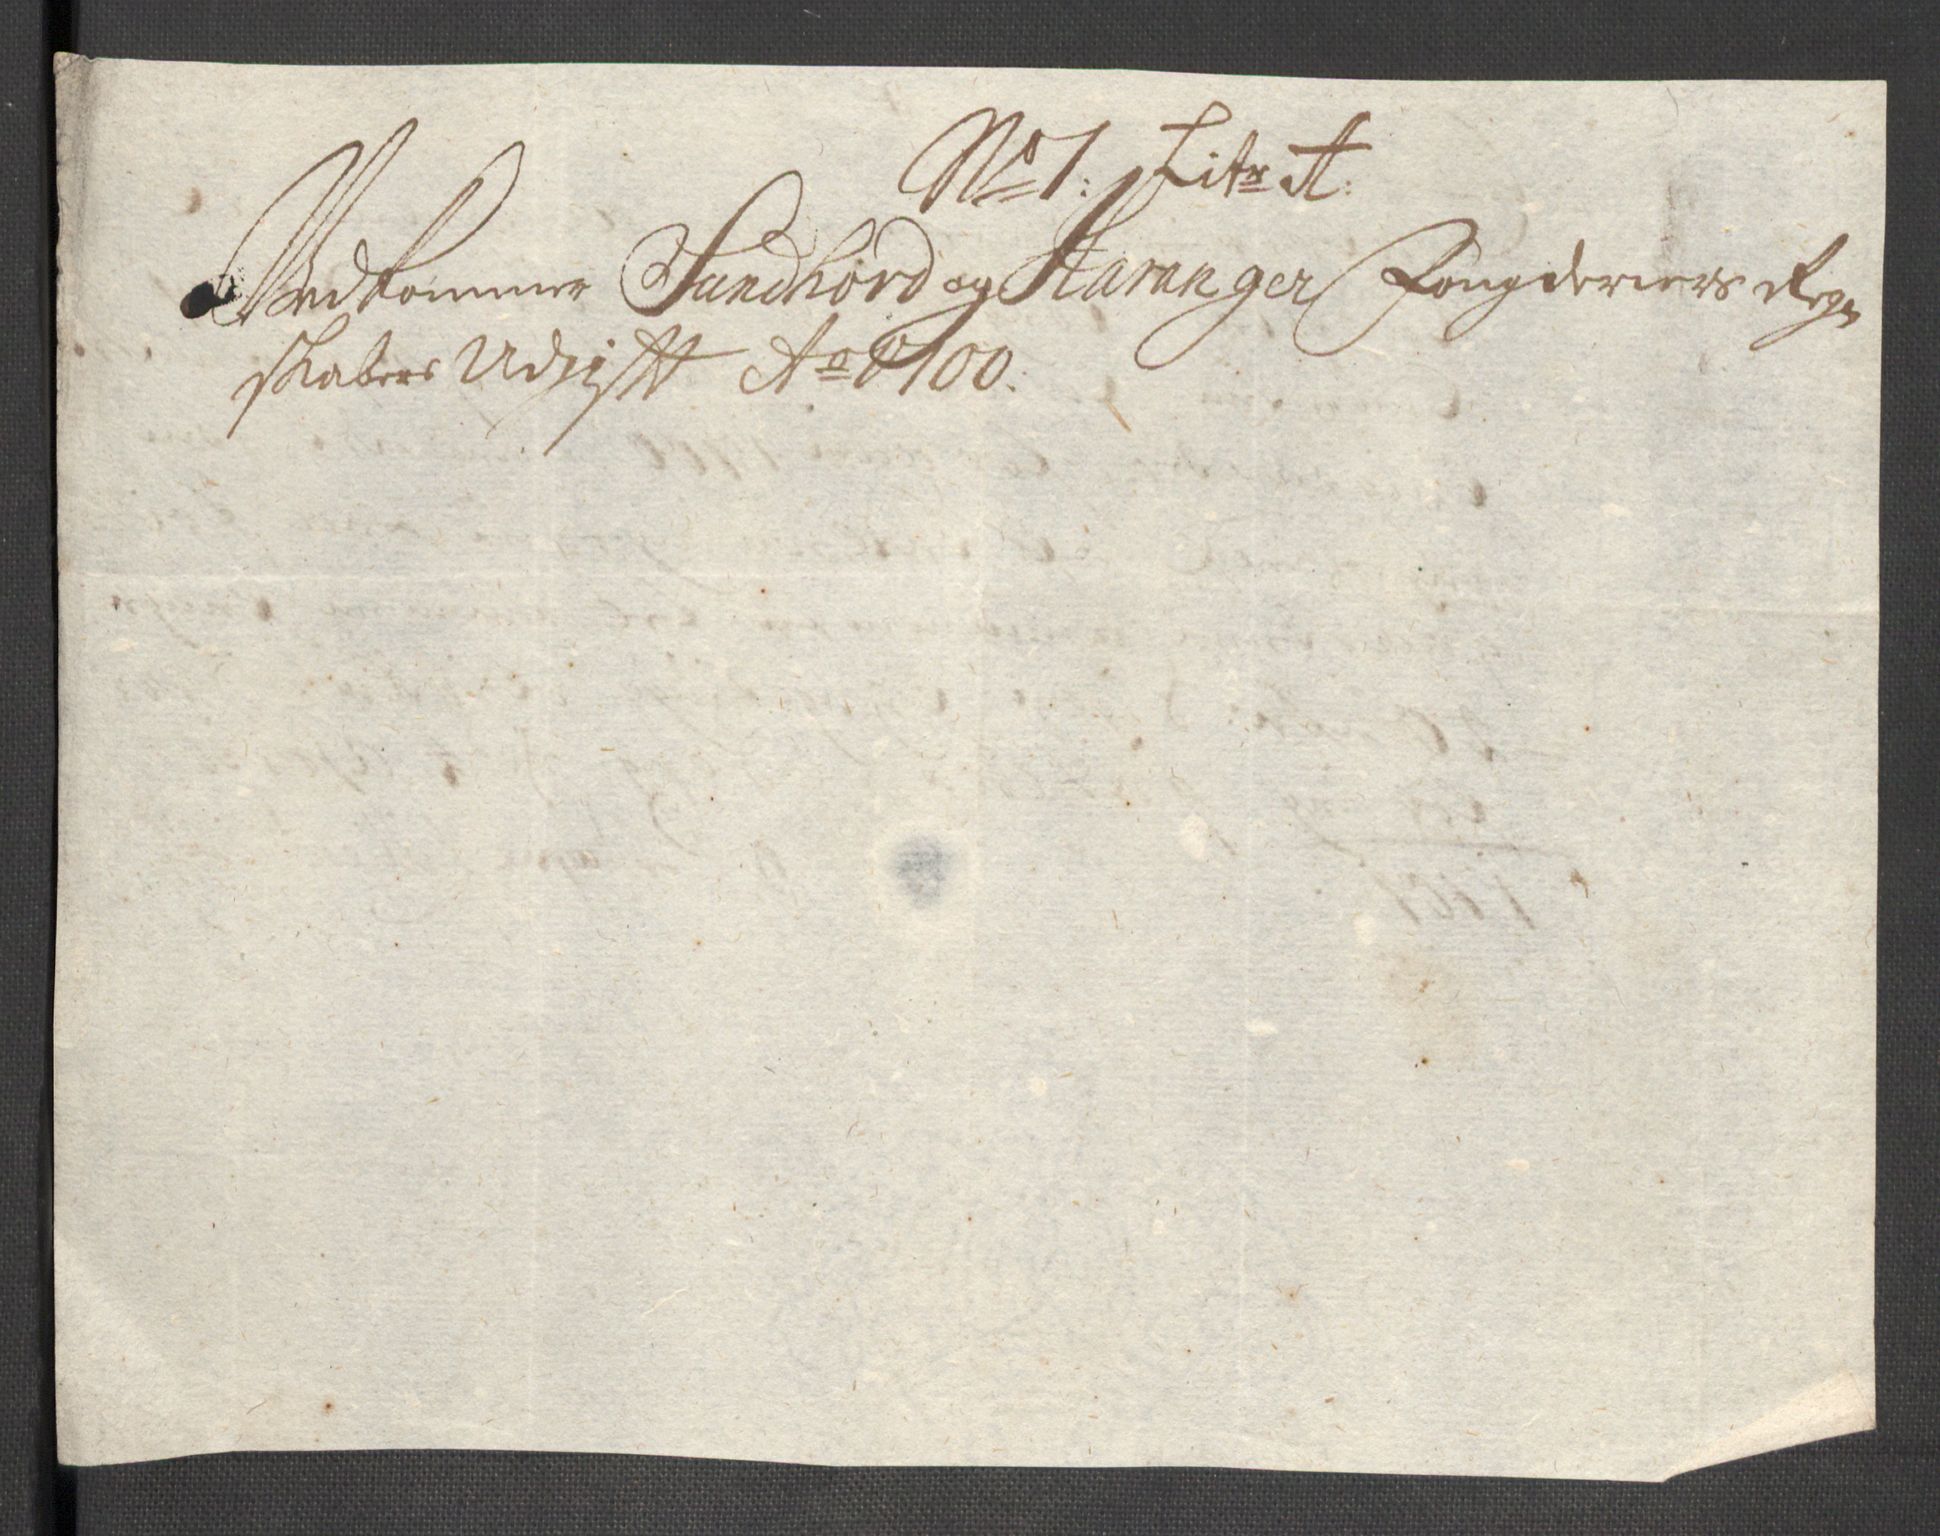 No 1. Litr A.
Vedkommer Sundhord og Hardanger Fougderiers Regn
skabers Udgifft Ao 1700.